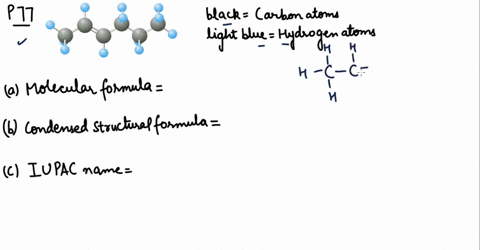 P77
black = Carbon atoms
light blue = Hydrogen atoms
H H
H - C - C -
H
(a) Molecular formula =
(b) Condensed structural formula =
(c) IUPAC name =